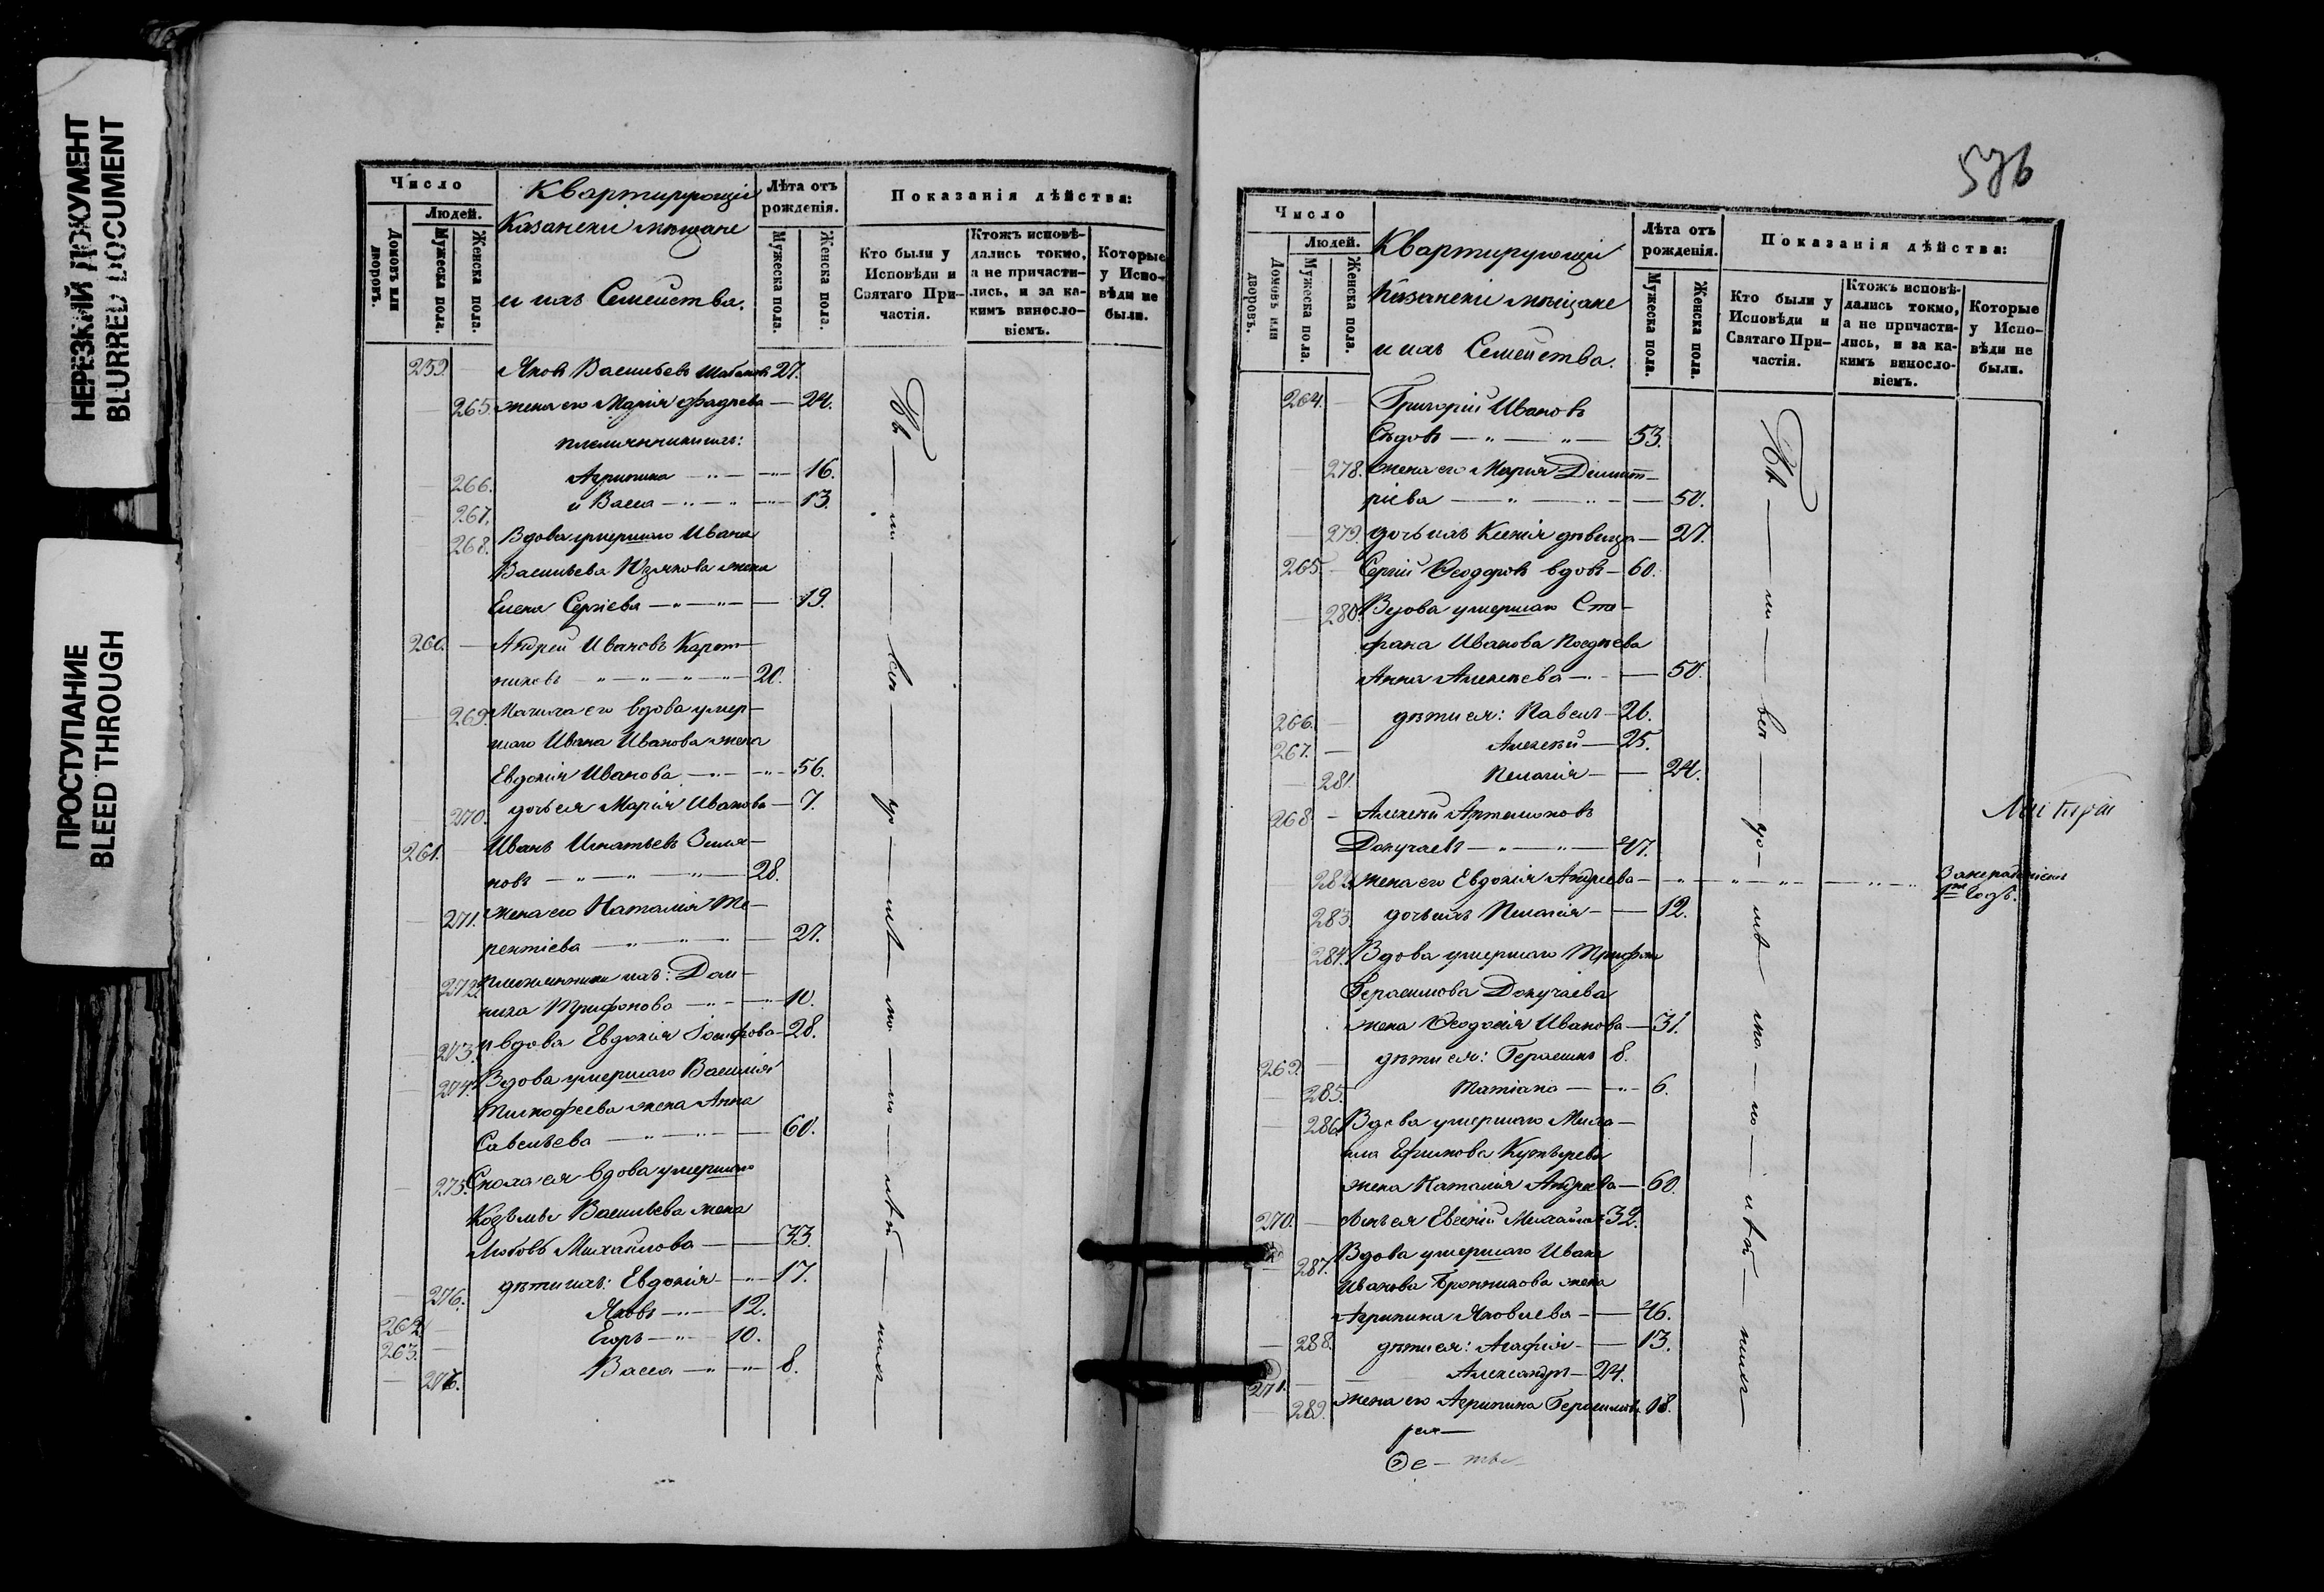 НЕРЕЗКИЙ ДОКУМЕНТ
BLURRED DOCUMENT
ПРОСТУПАНИЕ
BLEED THROUGH
Число
Людей.
Домовъ или дворовъ.
Мужеска пола.
Женска пола.
Квартирующіе
Казанскіе мѣщане
и ихъ Семейства.
Лѣта отъ рожденія.
Мужеска пола.
Женска пола.
Показанія дѣйства:
Кто были у Исповѣди и Святаго Причастія.
Ктожъ исповѣдались токмо, а не причастились, и за какимъ винословіемъ.
Которые у Исповѣди не были.
259. Яковъ Васильевъ 27.
265. жена его Марія Фадѣева — 24.
племянницы ихъ:
266. Агрипина — 16.
267. и Васса — 13.
268. Вдова умершаго Ивана
Васильева жена
Елена Сергіева — 19.
260. Андрей Ивановъ Карет-
никовъ — 20.
269. Мачиха его вдова умер-
шаго Ивана Иванова жена
Евдокія Иванова — 56.
270. дочь ея Марія Иванова — 7.
261. Иванъ Игнатьевъ Зиля-
ковъ — 28.
271. жена его Наталія Те-
рентіева — 27.
272. племянницы ихъ: Дом-
ника Трифонова — 10.
273. и вдова Евдокія Іосифова — 28.
274. Вдова умершаго Василія
Тимофеева жена Анна
Савельева — 60.
275. Сноха ея вдова умершаго
Козьмы Васильева жена
Любовь Михайлова — 33.
276. дѣти ихъ: Евдокія — 17.
262. Яковъ — 12.
263. Егоръ — 10.
Васса — 8.
576
Число
Людей.
Домовъ или дворовъ.
Мужеска пола.
Женска пола.
Квартирующіе
Казанскіе мѣщане
и ихъ Семейства.
Лѣта отъ рожденія.
Мужеска пола.
Женска пола.
Показанія дѣйства:
Кто были у Исповѣди и Святаго Причастія.
Ктожъ исповѣдались токмо, а не причастились, и за какимъ винословіемъ.
Которые у Исповѣди не были.
264. Григорій Ивановъ
Сѣдовъ — 53.
278. жена его Марія Димит-
ріева — 50.
279. дочь ихъ Ксенія дѣвица — 27.
265. Сергій Ѳеодоровъ вдовъ — 60.
280. Вдова умершаго Сте-
фана Иванова
Анна Алексѣева — 50.
266. дѣти ея: Павелъ — 26.
267. Алексѣй — 25.
281. Пелагія — 24.
268. Алексѣй Артамоновъ
Докучаевъ — 47.
282. жена его Евдокія Андреева —
283. дочь ихъ Пелагія — 12.
284. Вдова умершаго Трифона
Герасимова Докучаева
жена Ѳеодосія Иванова — 31.
269. дѣти ея: Герасимъ 8.
285. Татіана — 6.
286. Вдова умершаго Миха-
ила Ефимова
жена Наталія Андреева — 60.
270. сынъ ея Евсевій Михайловъ 32.
287. Вдова умершаго Ивана
Иванова Бронникова жена
Агрипина Яковлева — 46.
288. дѣти ея: Агафія — 13.
271. Александръ — 24.
289. жена его Агрипина Герасимова 18.